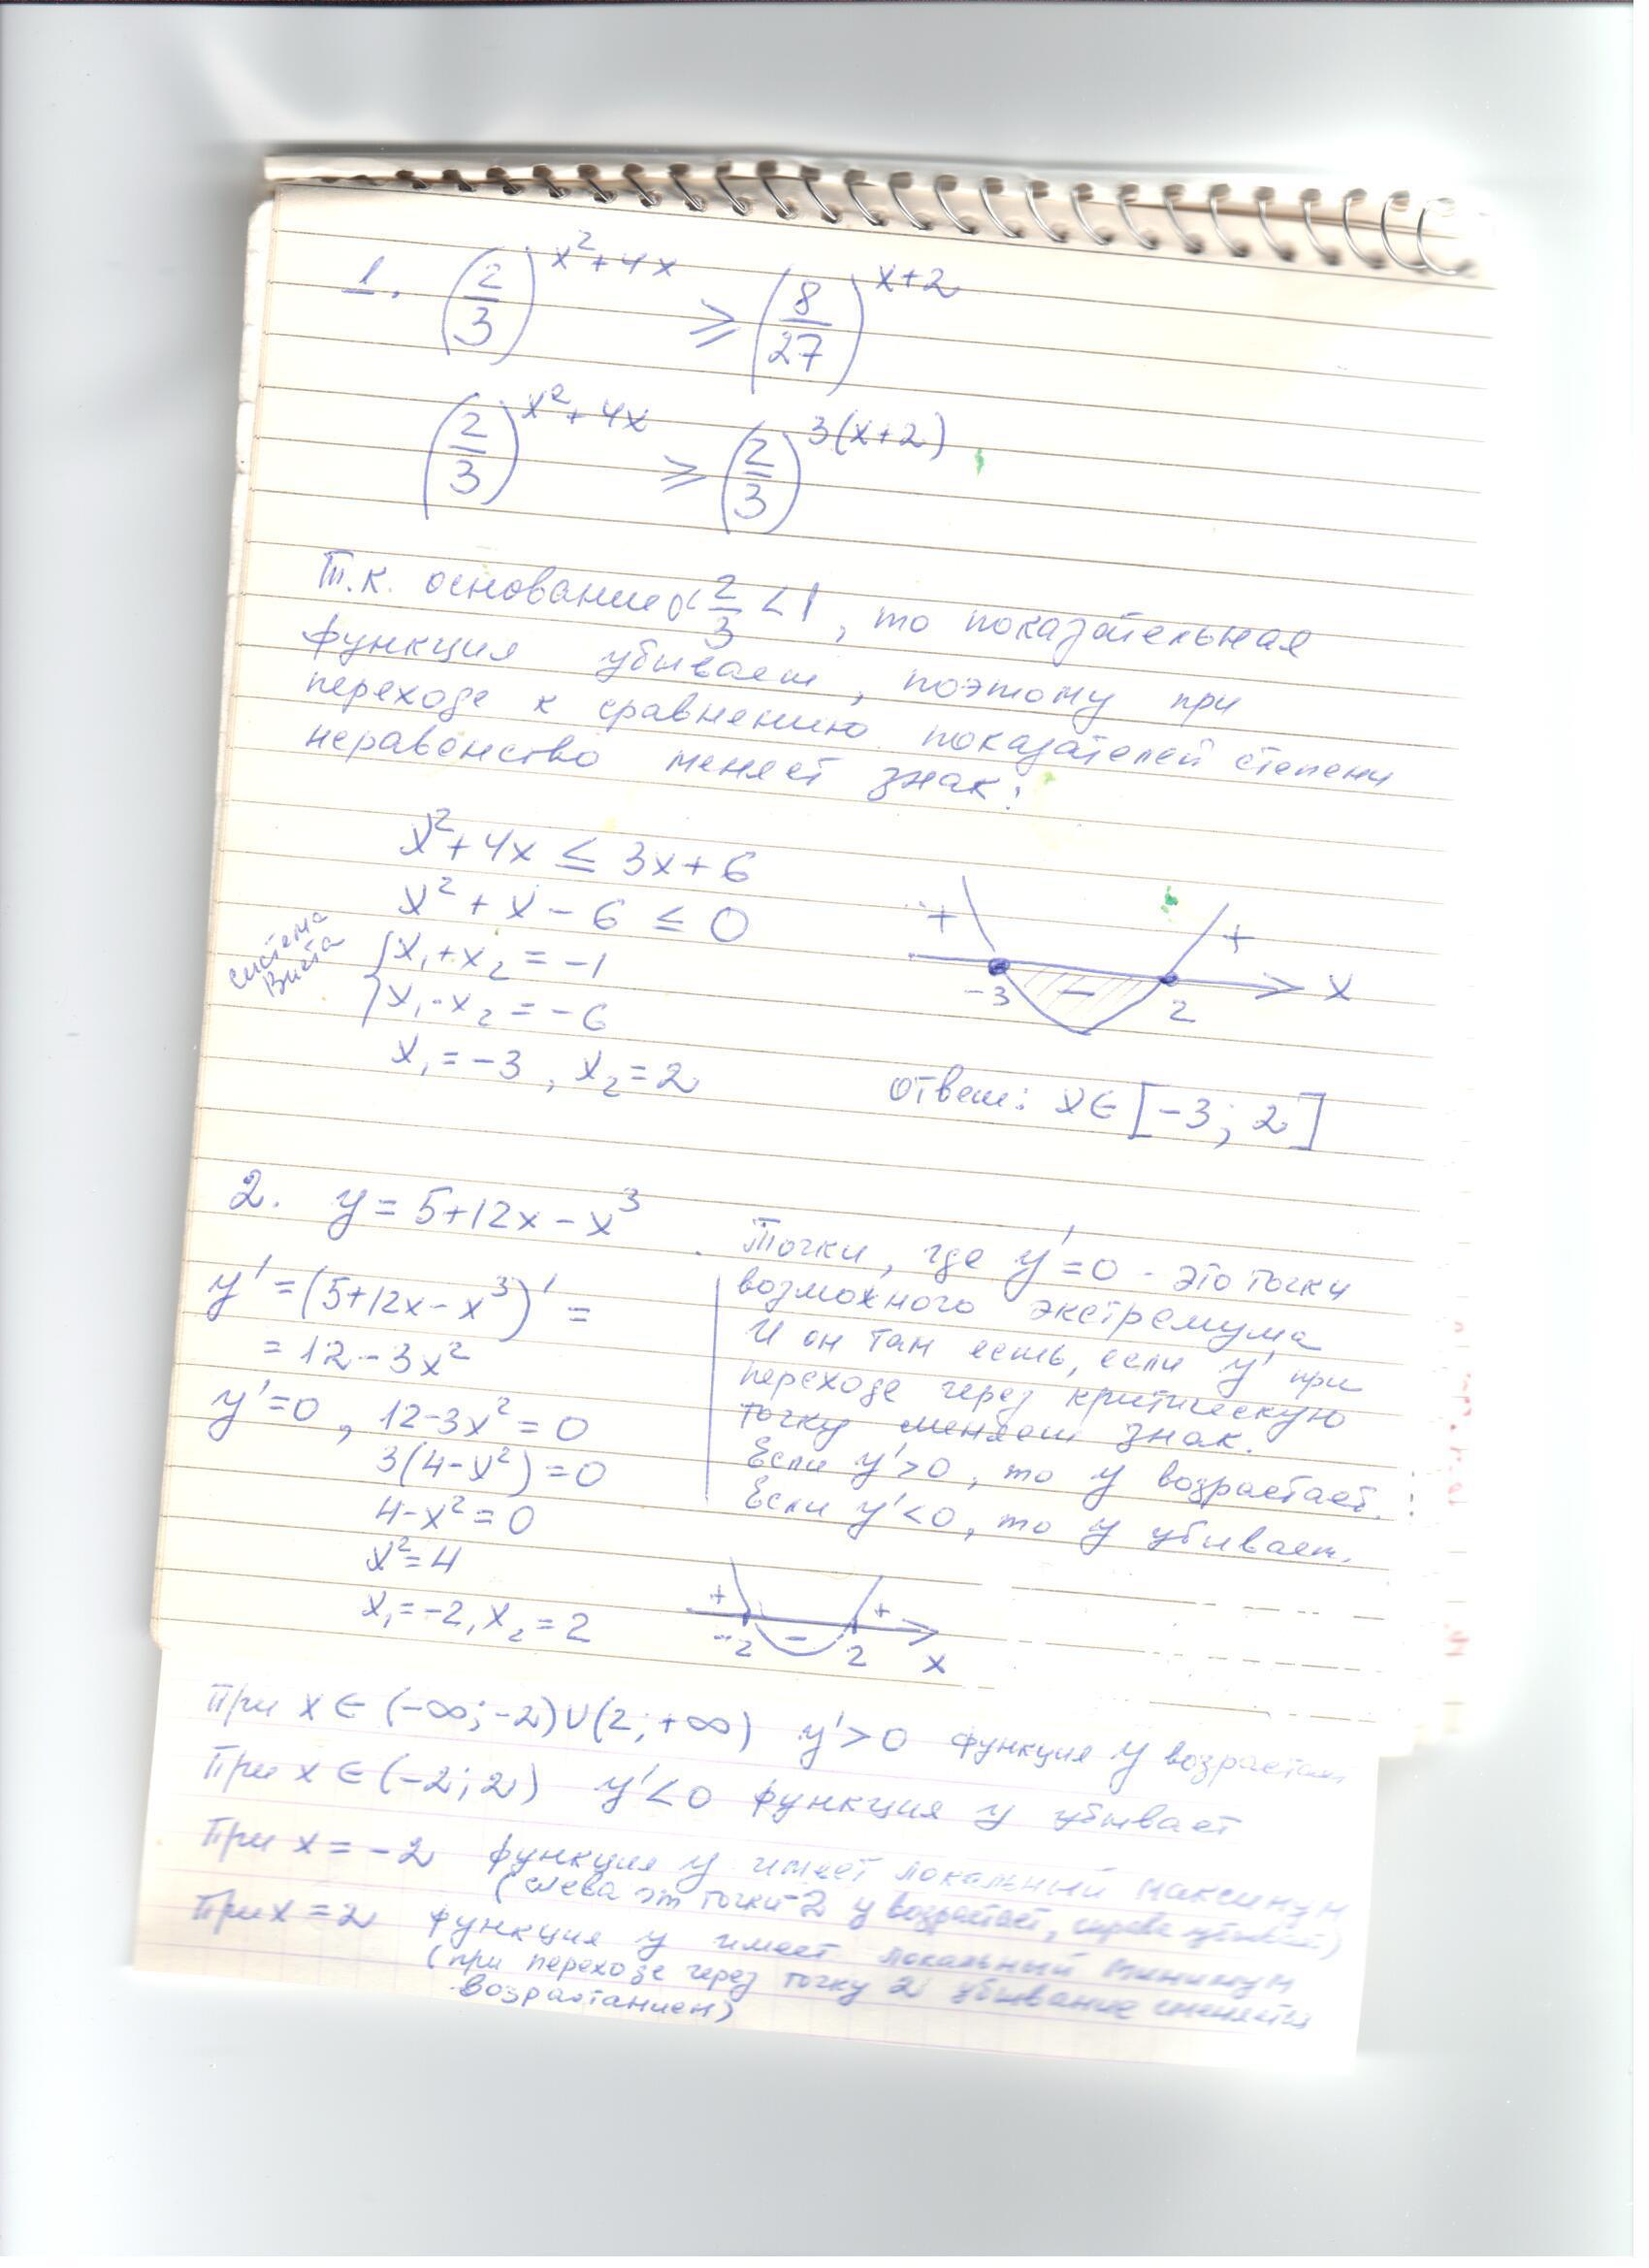 1. (2/3)^(x²+4x) ⩾ (8/27)^(x+2)
(2/3)^(x²+4x) ⩾ (2/3)^(3(x+2)),
Т.к. основание 0<2/3<1, то показательная
функция убывает, поэтому при
переходе к сравнению показателей степени
неравенство меняет знак:
x²+4x ≤ 3x+6
x²+x-6 ≤ 0
система
Виета
{x₁+x₂=-1
x₁·x₂=-6
x₁=-3, x₂=2
+ - +
-3 2 x
ответ: x∈[-3; 2]
2. y=5+12x-x³
y'=(5+12x-x³)'=
=12-3x²
y'=0, 12-3x²=0
3(4-x²)=0
4-x²=0
x²=4
x₁=-2, x₂=2
Точки, где y'=0 - это точки
возможного экстремума
И он там есть, если y' при
переходе через критическую
точку меняет знак.
Если y'>0, то y возрастает.
Если y'<0, то y убывает.
+ - +
-2 2 x
При x∈(-∞;-2)∪(2;+∞) y'>0 функция y возрастает
При x∈(-2;2) y'<0 функция y убывает
При x=-2 функция y имеет локальный максимум
(слева от точки -2 y возрастает, справа убывает)
При x=2 функция y имеет локальный минимум
(при переходе через точку 2 убывание сменяется
возрастанием)